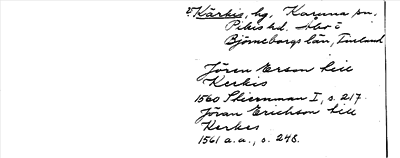 Kärkis, hg, Karuna sn,
Pikis hd. Åbo o
Björneborgs län, Finland
Jören Erson till
Kerkis
1560 Stiernman I, s. 217.
Jöran Erichson till
Kerkes
1561 a.a., s. 248.